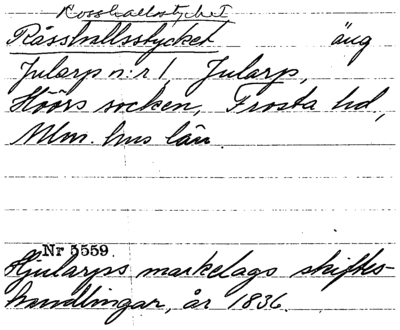 Rosshallsstycket
Råsshallsstycket äng
Jularp n:r 1, Jularp,
Höörs socken, Frosta hd,
Mlm. hus län.
Nr 5559.
Hjularps markelags skiftes-
handlingar, år 1836.